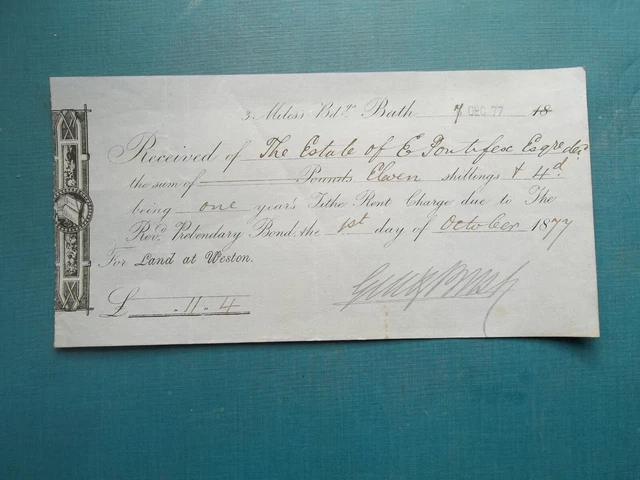 3, Miless Bdgs. Bath 7 DEC 77 18
Received of The Estate of E Pontifex Esqre decd
the sum of Pounds Eleven shillings & 4d
being one year's Tithe Rent Charge due to The
Revd. Prebendary Bond, the 1st day of October 1877
For Land at Weston.
£ - 11 - 4